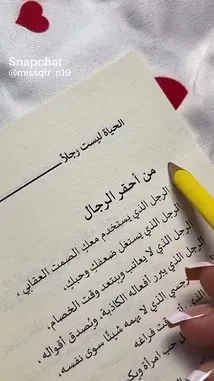 Snapchat
@missqtr_n19
الحياة ليست رجلاً
من أحقر الرجال
الرجل الذي يستخدم معك الصمت العقابي ،
الرجل الذي يستغل ضعفك وحبك،
الرجل الذي لا يعاتب ويبتعد وقت الخصام،
الذي يبرر أفعاله الكاذبة، ويُصدق أقواله ،
الذي لا يهمه شيئًا سوى نفسه،
وقت فراغه
حب امرأة